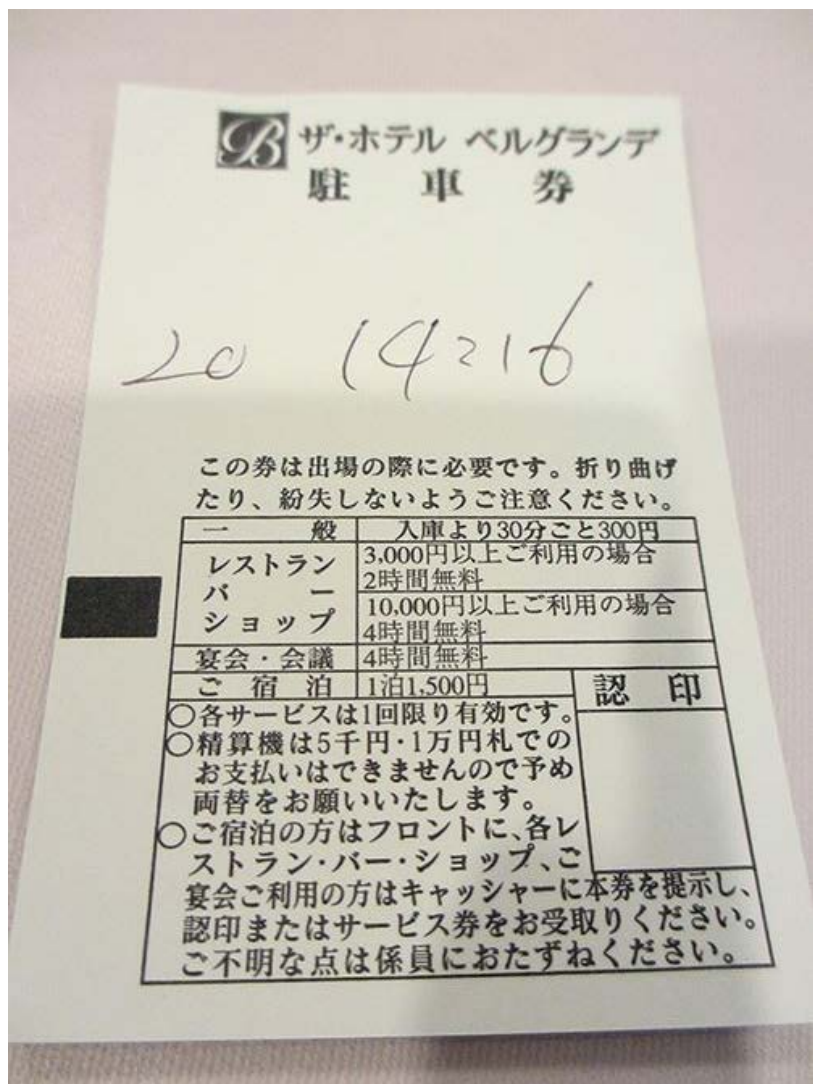 B ザ・ホテル ベルグランデ
駐車券
20 14:16
この券は出場の際に必要です。折り曲げ
たり、紛失しないようご注意ください。
一般 入庫より30分ごと300円
レストラン 3,000円以上ご利用の場合
2時間無料
バー
10,000円以上ご利用の場合
ショップ 4時間無料
宴会・会議 4時間無料
ご宿泊 1泊1,500円 認印
○各サービスは1回限り有効です。
○精算機は5千円・1万円札での
お支払いはできませんので予め
両替をお願いいたします。
○ご宿泊の方はフロントに、各レ
ストラン・バー・ショップ、ご
宴会ご利用の方はキャッシャーに本券を提示し、
認印またはサービス券をお受取りください。
ご不明な点は係員におたずねください。